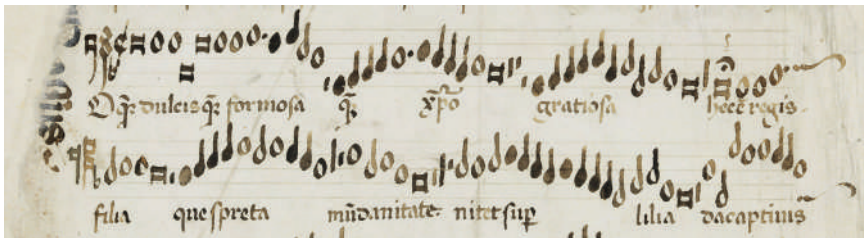 O q̃ȝ dulcis q̃ȝ formosa q̃ȝ xp̃o gratiosa hec ẽ regis
filia que spreta mũdanitate nitet sup̱ lilia da captiuis